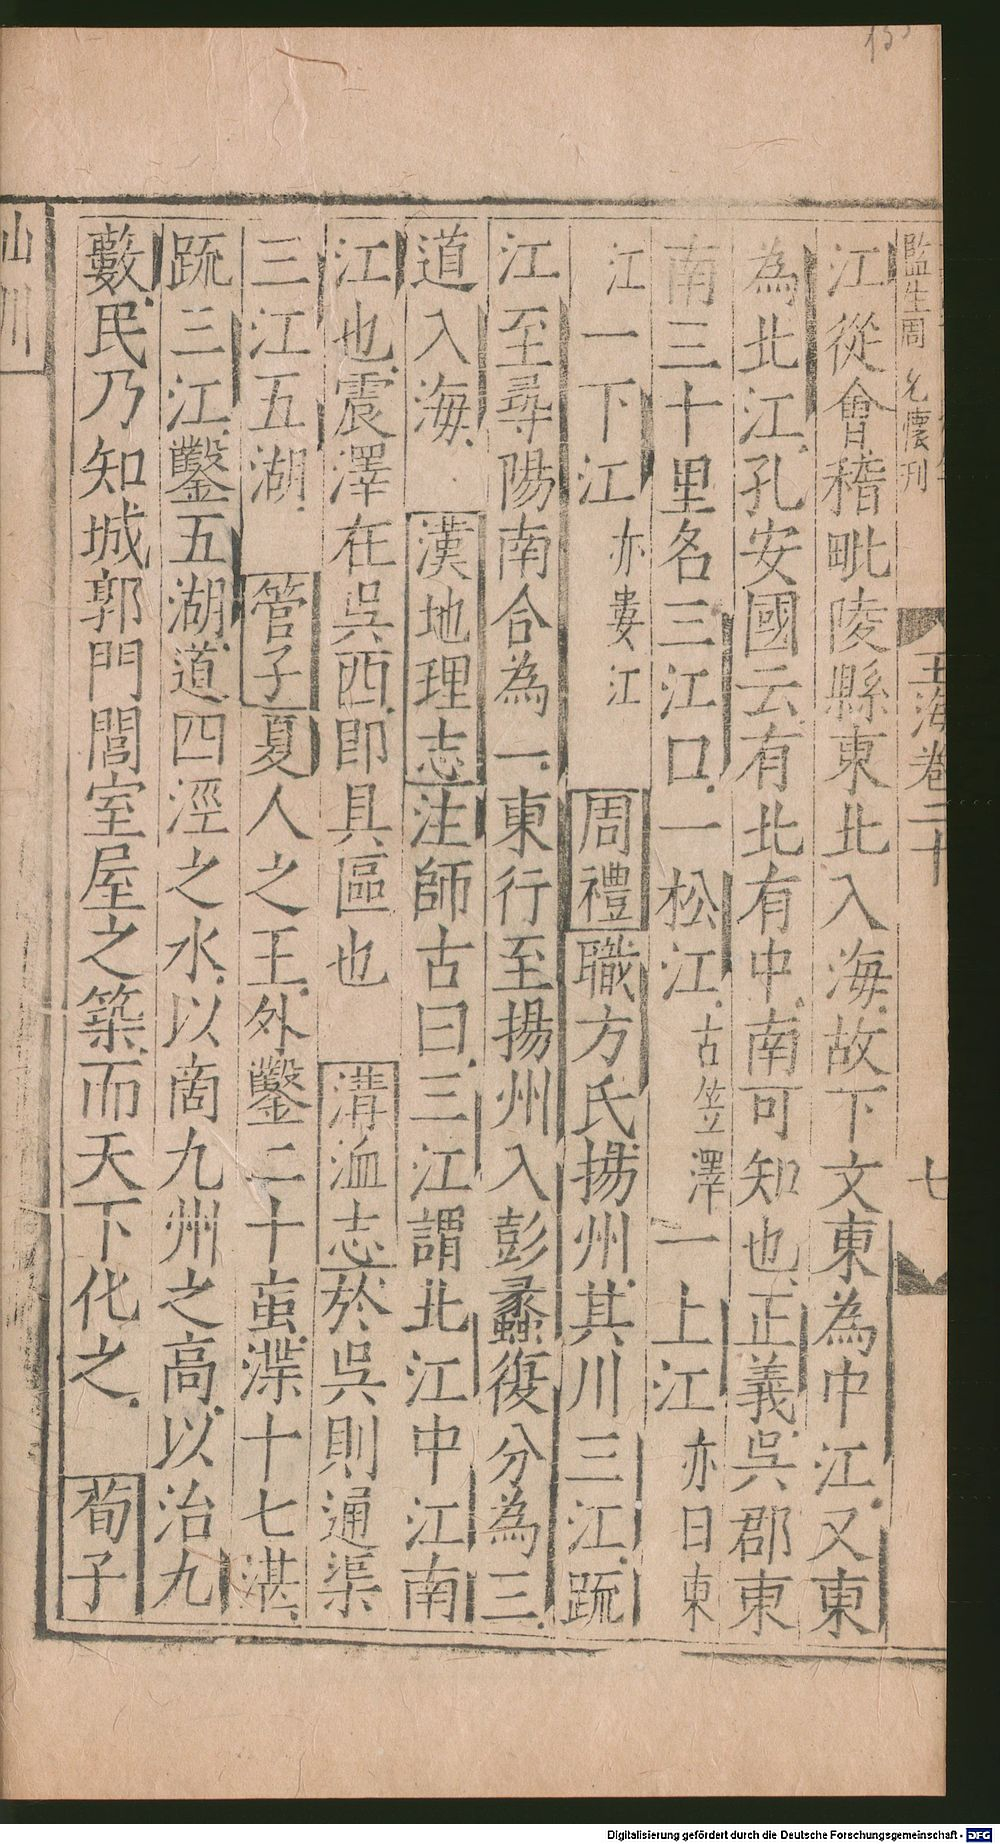 監生周允懷刊
玉海卷二十
七
江從會稽毗陵縣東北入海故下文東為中江又東
為北江孔安國云有北有中南可知也正義吳郡東
南三十里名三江口一松江古笠澤一上江亦曰東
江一下江亦婁江 周禮職方氏揚州其川三江疏
江至尋陽南合為一東行至揚州入彭蠡復分為三
道入海 漢地理志注師古曰三江謂北江中江南
江也震澤在吳西即具區也 溝洫志於吳則通渠
三江五湖 管子夏人之王外鑿二十䖟渫十七湛
疏三江鑿五湖道四涇之水以商九州之高以治九
藪民乃知城郭門閭室屋之築而天下化之 荀子
山川
Digitalisierung gefördert durch die Deutsche Forschungsgemeinschaft - DFG